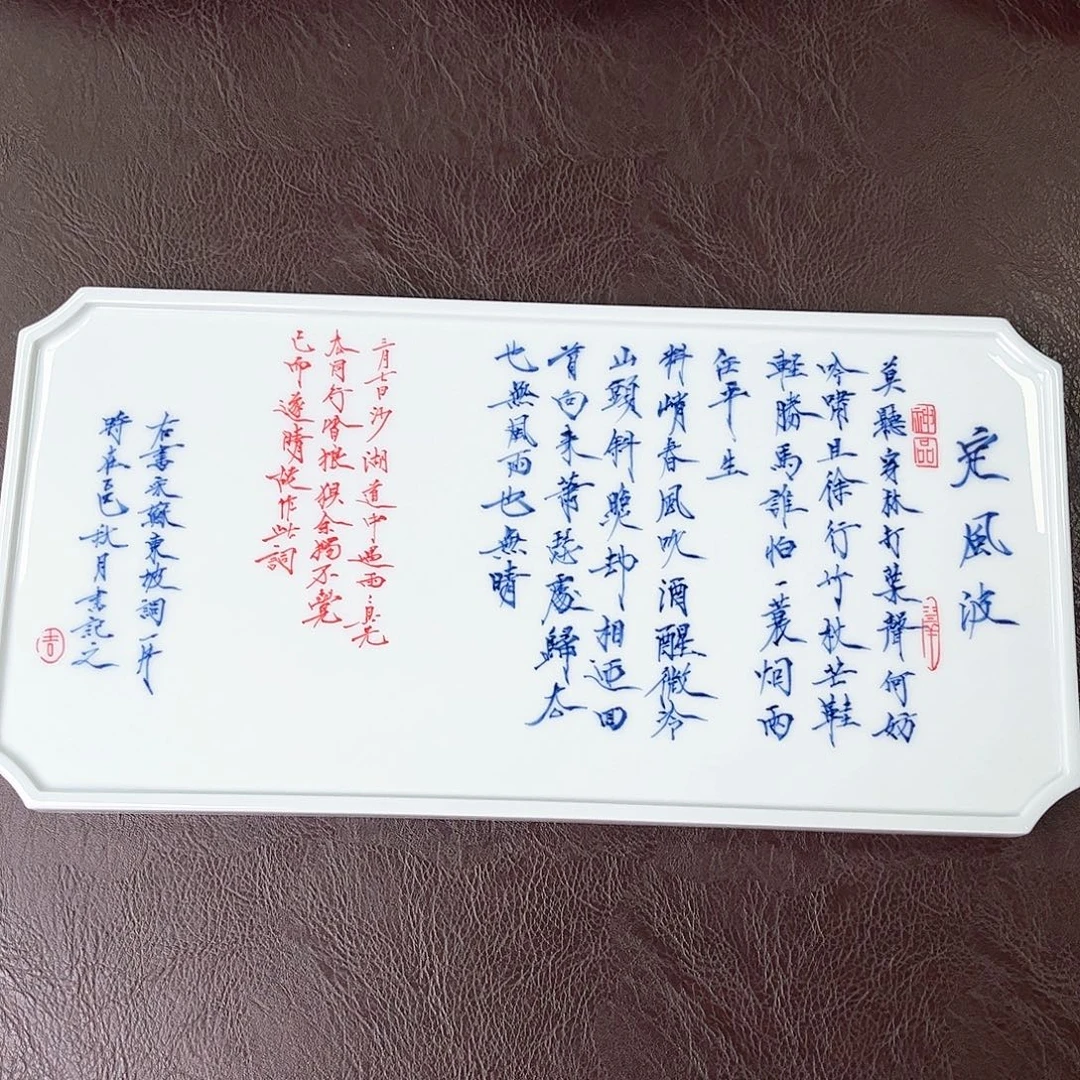 定風波
神品
莫聽穿林打葉聲何妨
吟嘯且徐行竹杖芒鞋
軽勝馬誰怕一蓑烟雨
任平生
料峭春風吹酒醒微冷
山頭斜照却相迎回
首向来蕭瑟處歸去
也無風雨也無晴
三月七日沙湖道中遇雨〻具先
去同行皆狼狽余獨不覺
已而遂晴故作此詞
右書宋蘇東坡詞一片
時在乙巳秋月書記之
吉